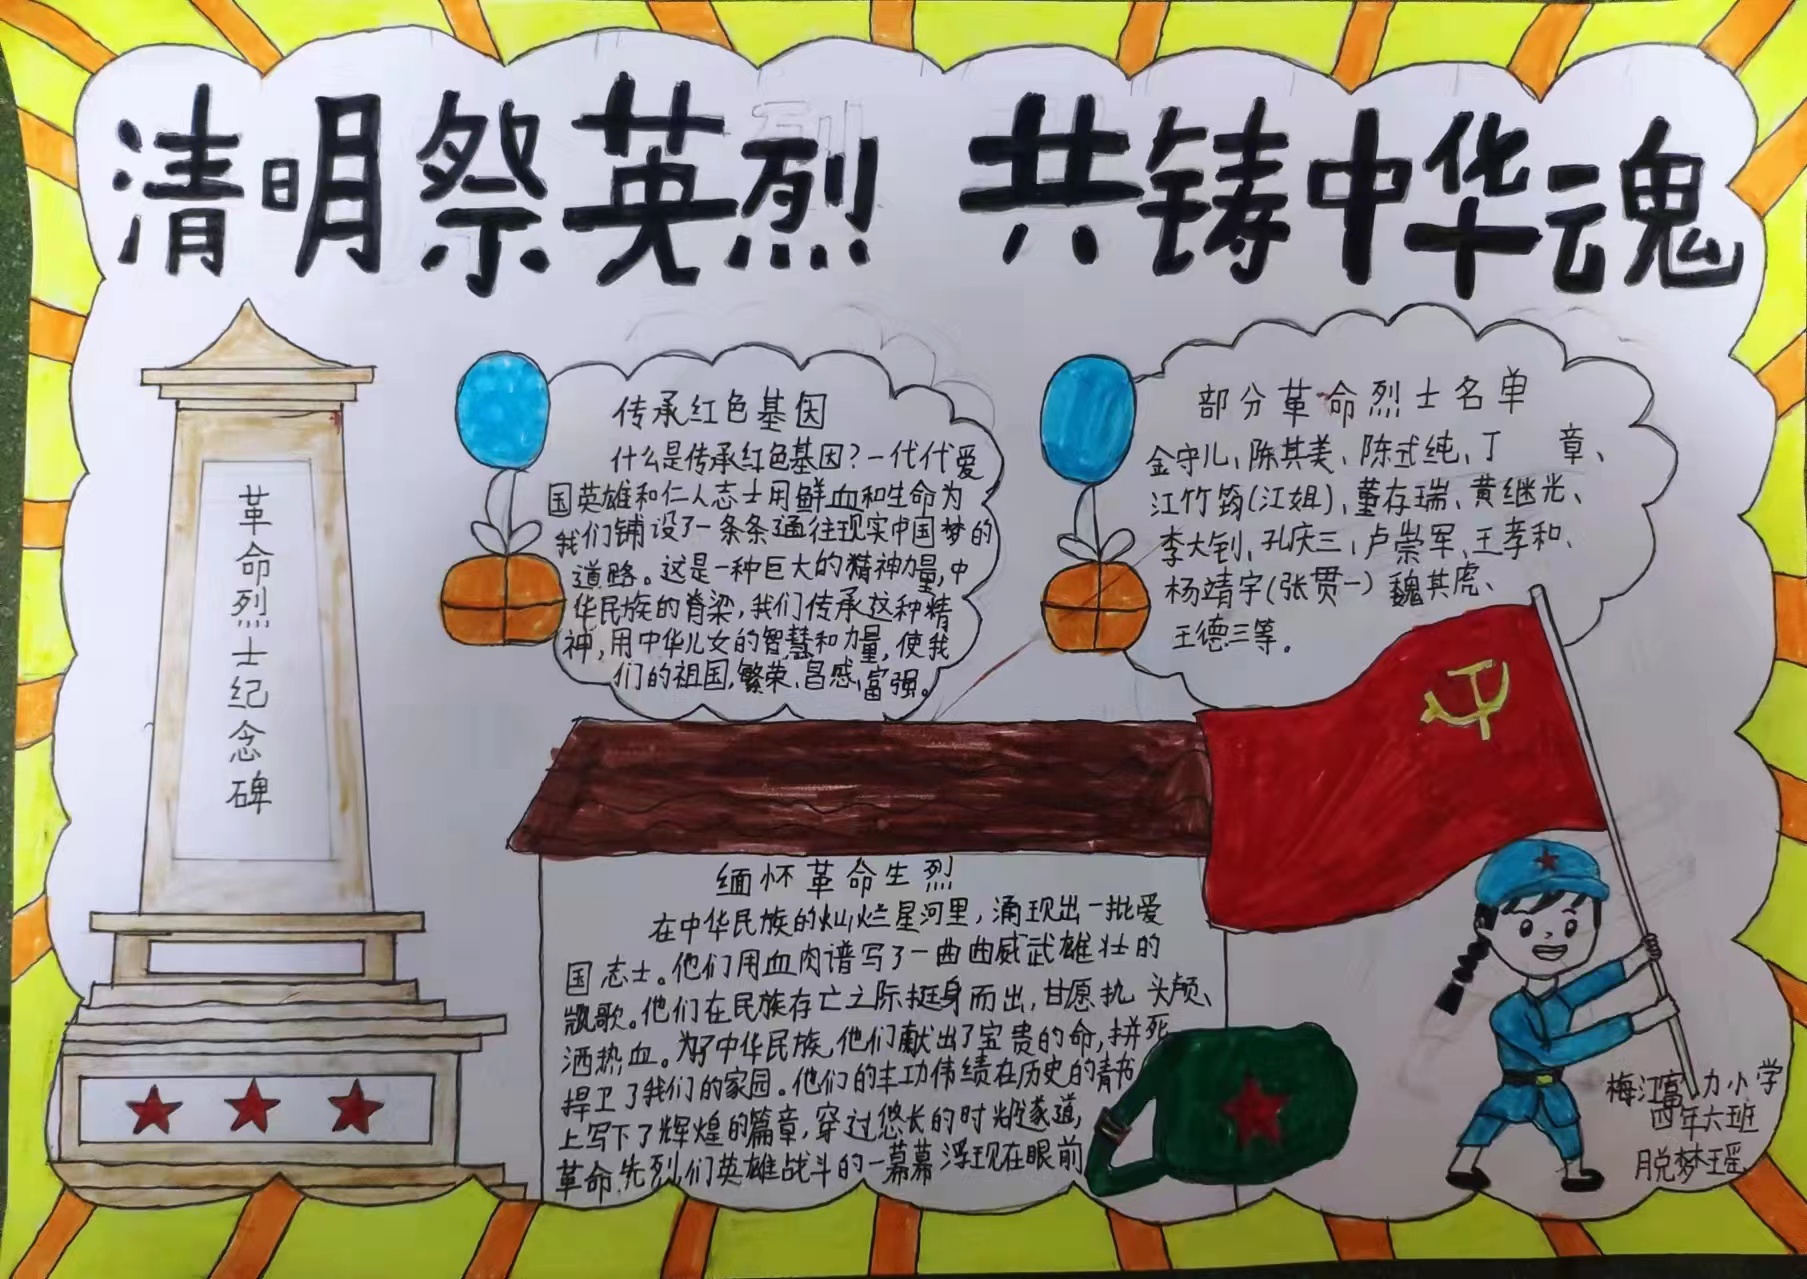 清明祭英烈 共铸中华魂
革命烈士纪念碑
传承红色基因
什么是传承红色基因?一代代爱
国英雄和仁人志士用鲜血和生命为
我们铺设了一条条通往现实中国梦的
道路。这是一种巨大的精神力量,中
华民族的脊梁,我们传承这种精
神,用中华儿女的智慧和力量,使我
们的祖国,繁荣、昌感、富强。
部分革命烈士名单
金守儿、陈其美、陈式纯、丁 章、
江竹筠(江姐)、董存瑞、黄继光、
李大钊、孔庆三、卢崇军、王孝和、
杨靖宇(张贯一)魏其虎、
王德三等。
缅怀革命生烈
在中华民族的灿烂星河里,涌现出一批爱
国志士。他们用血肉谱写了一曲曲威武雄壮的
飘歌。他们在民族存亡之际挺身而出,甘愿执头颅、
洒热血。为了中华民族,他们献出了宝贵的命,拼死
捍卫了我们的家园。他们的丰功伟绩在历史的青书
上写下了辉煌的篇章,穿过悠长的时光隧道,
革命先烈们英雄战斗的一幕幕浮现在眼前
梅江富力小学
四年六班
脱梦瑶